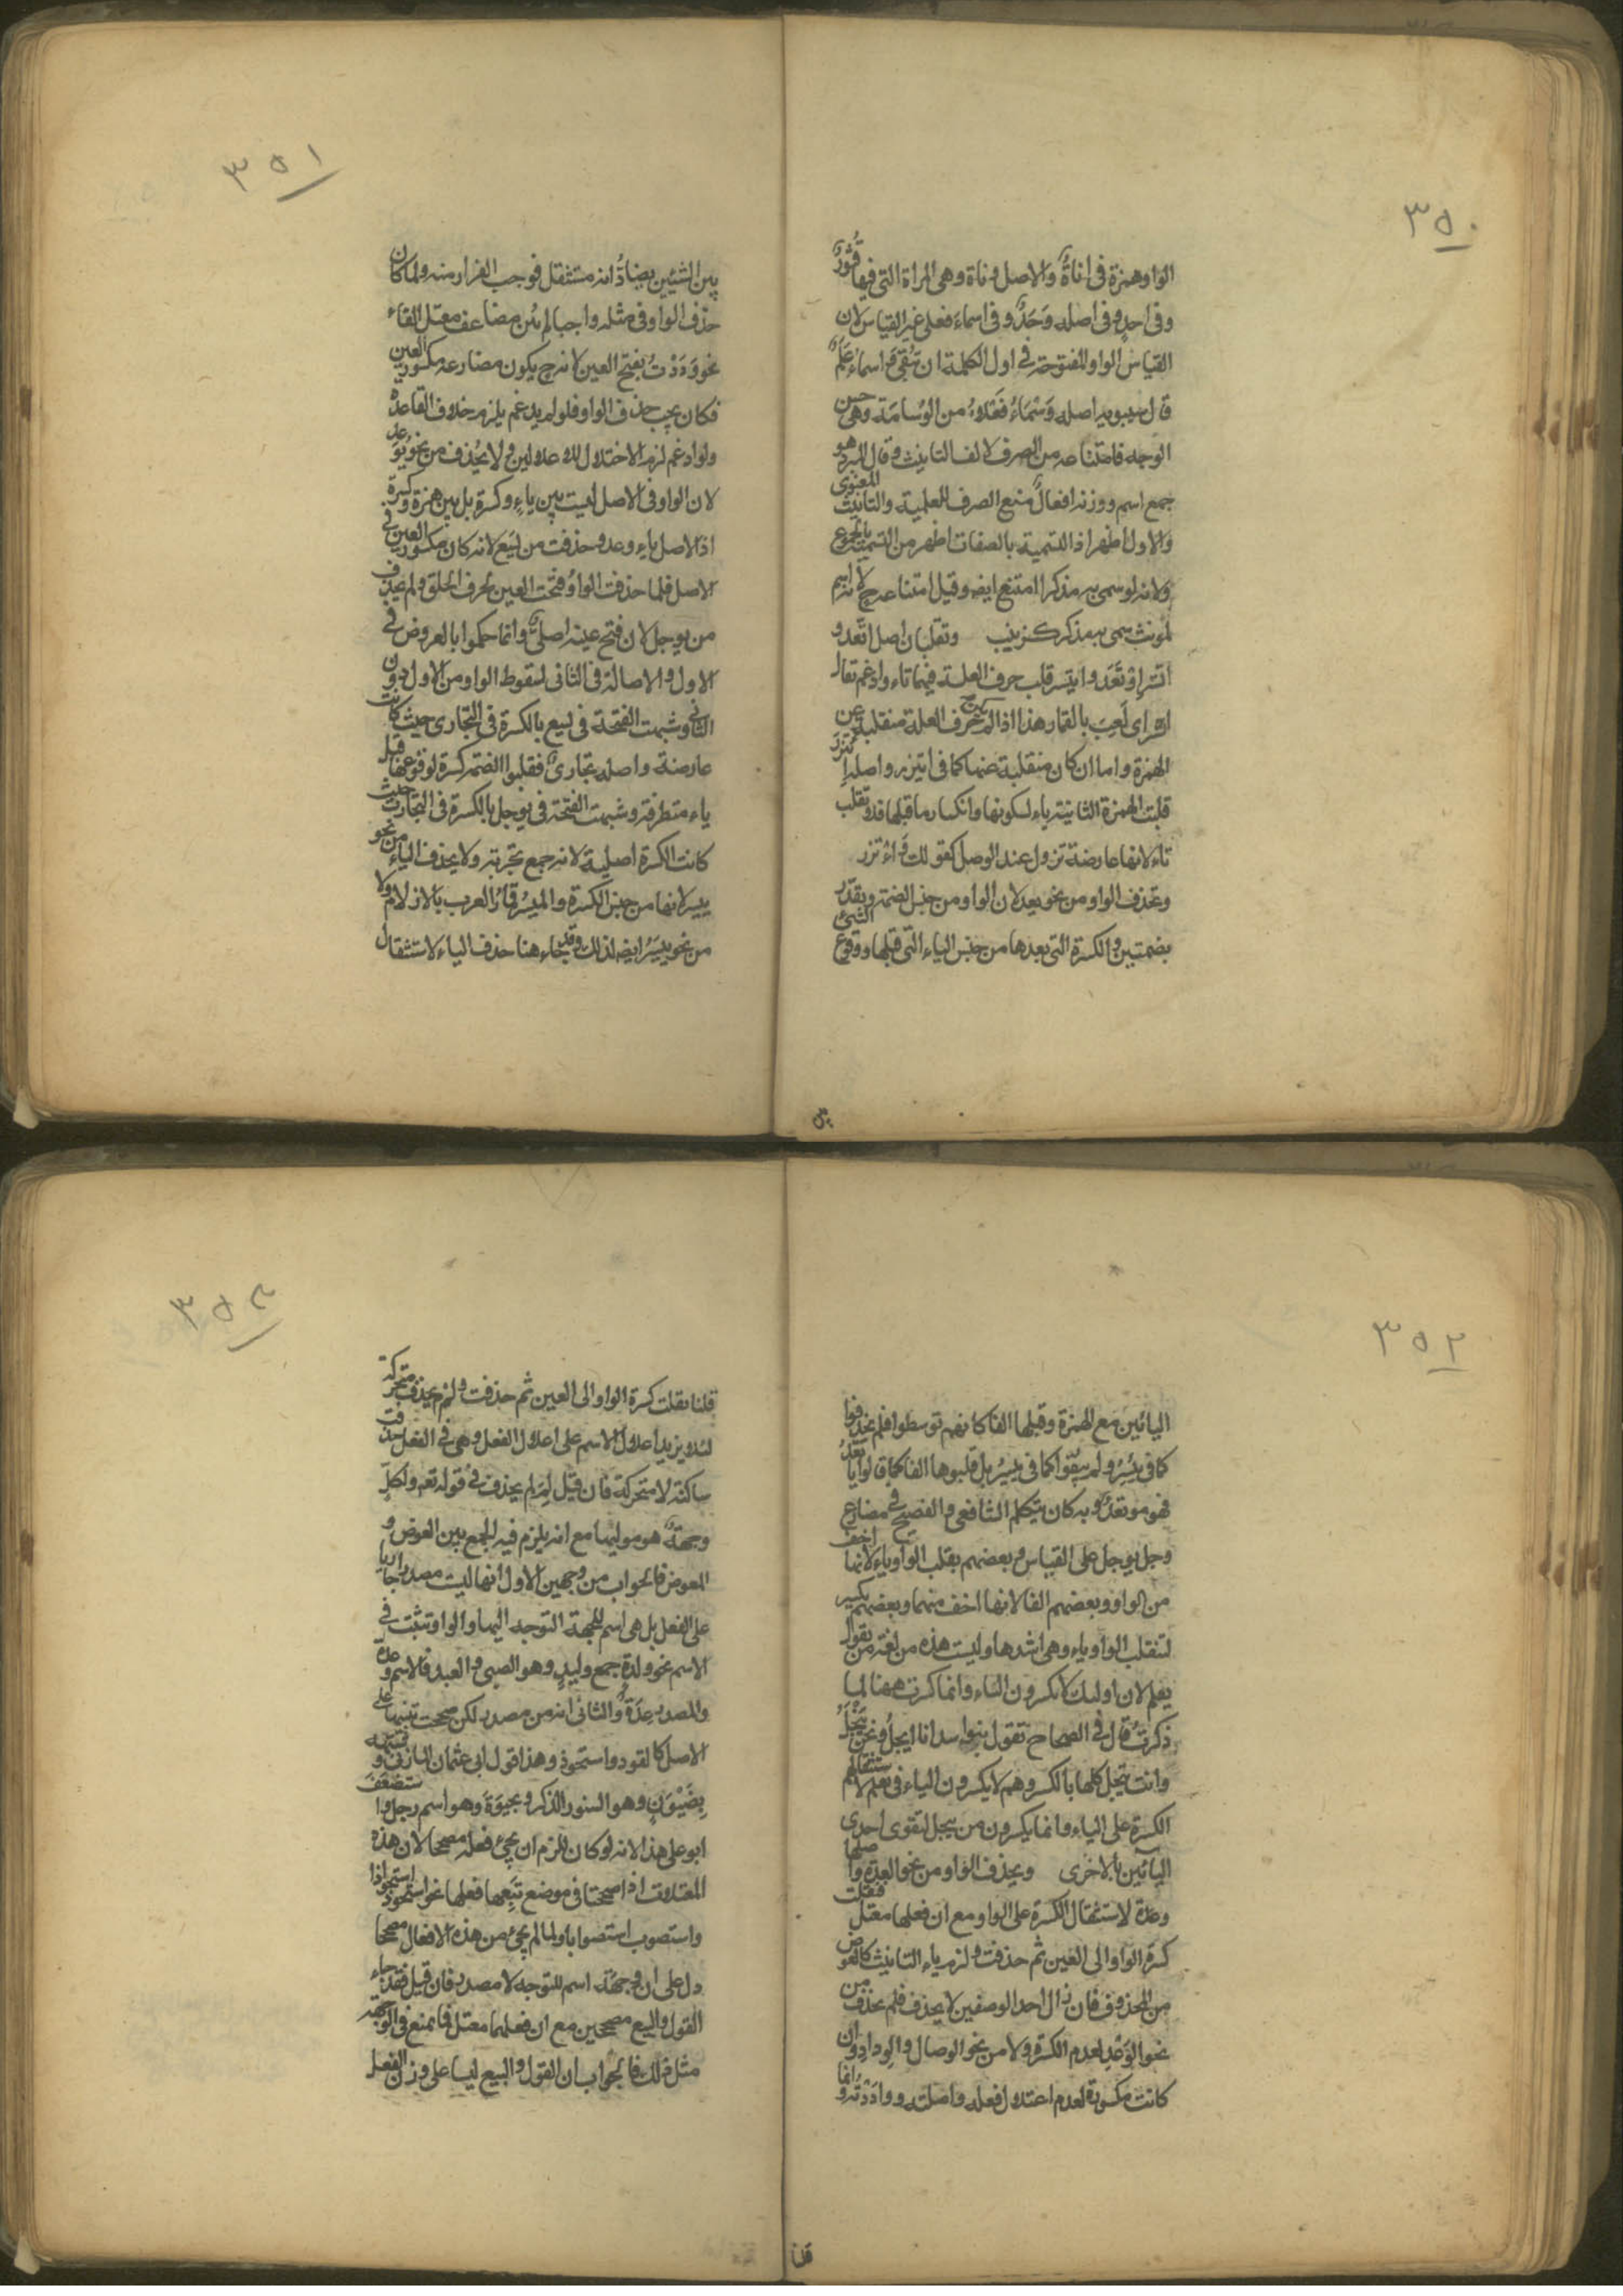 ٣٥٠
الواو همزة فى اناةٌ والاصل وناة وهى المراة التى فيها فتورٌ
وفى احدٍ وفى اصله وَحَدٌ وفى اسماءَ فعلى غير القياس لان
القياس الواو المفتوحة فى اول الكلمة ان تبقى واسماءُ عَلَمٌ
قال سيبويه اصله وَسْمَاءُ فَعْلاءُ من الوَسامَة وهى حسن
الوجه فامتناعه من الصرف لالف التانيث وقال المبرد هو
جمع اسم ووزنه افعالٌ منع الصرف للعلمية والتانيث المعنوى
والاول اظهر اذ التسمية بالصفات اظهر من التسمية بالجموع
ولانه لو سمى به مذكرا امتنع ايضه وقيل امتناعه ح لانه اسم
لمونث سمى به مذكر كزينب وتقلبان اصل اتّعد و
اتّسر اوْتَعَد وايتسر قلب حرف العلة فيهما تاء وادغم يقال
اتسر اى لَعِبَ بالقمار هذا اذا لم يكن حرف العلة منقلبة عن
الهمزة واما ان كان منقلبة عنها كما فى ايتزر واصله اِئْتَزَرَ
قلبت الهمزة الثانية ياء لسكونها وانكسار ما قبلها فلا تقلب
تاء لانها عارضة تزول عند الوصل كقولك وَائتزر
وتحذف الواو من نحو يعد لان الواو من جنس الضمة ويقدّر
بضمتين والكسرة التى بعدها من جنس الياء التى قبلها ووقوع الشئ
بين
٣٥١
بين الشيئين يضادّانه مستثقل فوجب الفرار منه ولما كان
حذف الواو فى مثله واجبا لم يُبن مضاعف معتل الفاء
نحو وَدَدْتُ بفتح العين لانه ح يكون مضارعه مكسور العين
فكان يجب حذف الواو فلو لم يدغم يلزم خلاف القاعدة
ولو ادغم لزم الاختلال للاعلالين ولا يُحذف من نحو يُوعِد
لان الواو فى الاصل ليست بين ياءٍ وكسرة بل بين همزة وكسرة
اذ الاصل يأوعد وحذفت من يَسَع لانه كان مكسور العين فى
الاصل فلما حذفت الواوُ فُتحت العين لحرف الحلق ولم يحذف
من يوجل لان فتح عينه اصلىٌّ وانما حكموا بالعروض فى
الاول والاصالة فى الثانى لسقوط الواو من الاول دون
الثانى وشبهت الفتحة فى يسع بالكسرة فى التجارى حيث كانت
عارضة واصله تجارىٌ فقلبوا الضمة كسرة لوقوعها قبل
ياء متطرفة وشبهت الفتحة فى يوجل بالكسرة فى التجارب حيث
كانت الكسرة اصلية لانه جمع تجربة ولا يحذف الياء من نحو
ييسر لانها من جنس الكسرة والميسُر قمارُ العرب بالازلام ولا
من نحو ييسَرُ ايضه لذلك وقد جاء هنا حذف الياء لاستثقال
٣٥٢
اليائين مع الهمزة وقبلها الفا كانهم توسطوا فلم يحذفوا
كما فى يئِسُ ولم يبقوا كما فى ييسِرُ بل قلبوها الفا كما قالوا ياتعدُ
فهو موتعدٌ وبه كان يتكلم الشافعى والفصيح فى مضارع
وجل يوجل على القياس وبعضهم يقلب الواو ياء لانها اخف
من الواو وبعضهم الفا لانها اخف منهما وبعضهم يكسر
لتنقلب الواو ياء وهى اشدها وليست هذه من لغة من يقول
يعلم لان اولئك لا يكسرون الياء وانما كسرت ههنا لما
ذكرتُ قال فى الصحاح تقول بنو اسد انا ايجلُ ونحن نيجلُ
وانت تيجل كلها بالكسر وهم لا يكسرون الياء فى يعلم لاستثقالهم
الكسرة على الياء وانما يكسرون من ييجل لتقوى احدى
اليائين بالاخرى ويحذف الواو من نحو العِدة واصلها
وعدة لاستثقال الكسرة على الواو مع ان فعلها معتل فنقلت
كسرَة الواو الى العين ثم حذفت ولزم ياء التانيث كالعوض
من المحذوف فان زال احد الوصفين لا يحذف فلم يحذف من
نحو الوَعْدِ لعدم الكسرة ولا من نحو الوصال والوداد وان
كانت مكسورة لعدم اعتلال فعله واصلته ووادَدْتُه وانما
قلنا
٣٥٣
قلنا نقلت كسرة الواو الى العين ثم حذفت ولم يحذف متحركة
لئلا يزيد اعلال الاسم على اعلال الفعل وهى فى الفعل حذفت
ساكنة لا متحركة فان قيل لِمَ لم يحذف فى قوله تعم ولكلٍّ
وجهةٌ هو موليها مع انه يلزم فيه الجمع بين العوض و
المعوض فالجواب من وجهين الاول انها ليست مصدرا جاريا
على الفعل بل هى اسم للجهة التوجه اليها والواو تثبت فى
الاسم نحو ولدةٍ جمع وليدٍ وهو الصبى والعبد فالاسم وعدة
والمصدر عِدَةٌ والثانى انه من مصدر لكن صححت تنبيها على
الاصل كالقود واستحوذ وهذا قول ابى عثمان المازنى وشبهه
بِضَيْوَنٍ وهو السنور الذكر وبحيوَةَ وهو اسم رجل واستضعَفَ
ابو على هذا لانه لو كان للزم ان يجئ فعله مصححا لان هذه
المعتلات اذا صححت فى موضع تَبِعها فعلها نحو استحوذ استحواذا
واستصوب استصوابا ولما لم يجئ من هذه الافعال مصححا
دل على ان وِجهَةً اسم للتوجه لا مصدر فان قيل فقد جاء
القول والبيع مصححين مع ان فعلهما معتل فما يمنع فى الوجهة
مثل ذلك فالجواب ان القول والبيع ليسا على وزن الفعل